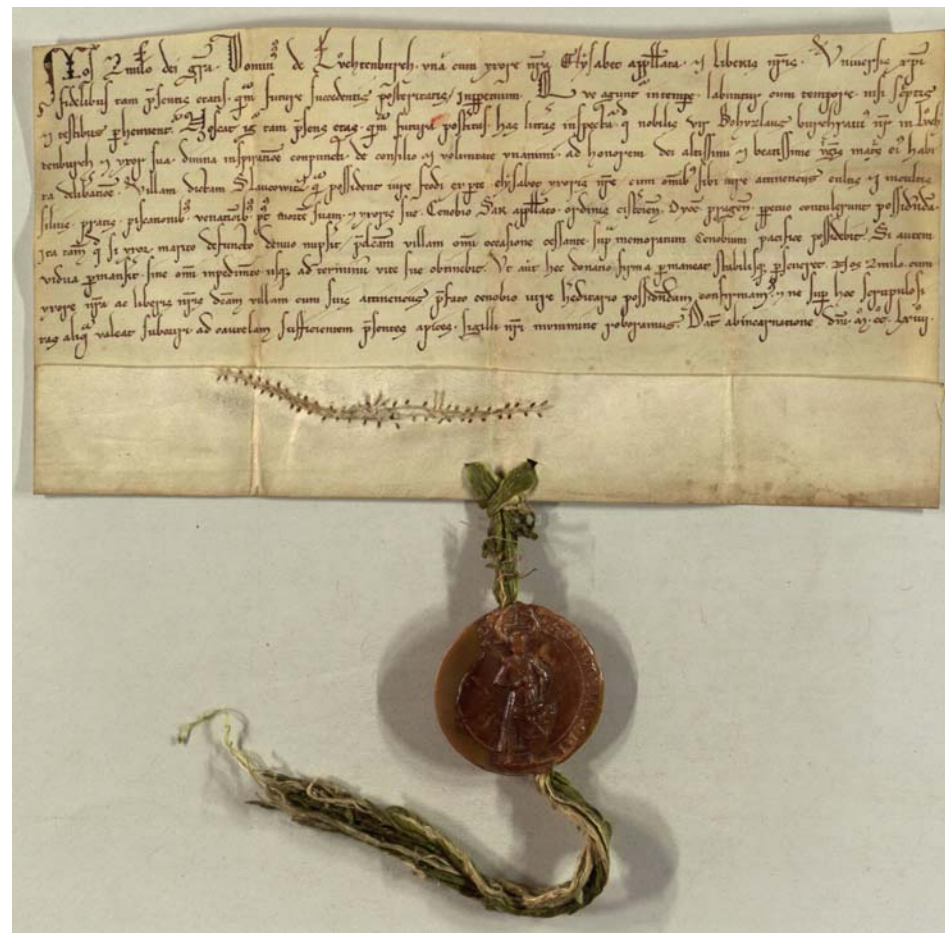 Nos Zmilo dei gr̄a. Domin⁹ de Luchtenburch. vna cum vxore nr̄a Elysabet app̄llata. ⁊ liberis nr̄is. Vniuersis xp̄i
fidelibus tam p̄sentis etatis. q̄m future succedentis p̄osteritatis / inp̄petuum. Que agunt᷑ in temp̄e. labunt᷑ cum tempore. nisi sc̄ptis
⁊ testibus p̄hennent᷑. Noscat ig᷑ tam p̄sens etas. q̄m futura posṫitas. has litt̄as inspectura. q̄ nobilis vir Bohuzlaus burchrauius nr̄ in luch
tenburch ⁊ vxor sua. diuina inspiratōne conpuncti. de consilio ⁊ voluntate vnanimi. ad honorem dei altissimi ⁊ beatissime v̄g̃is mat̄s ei⁹ habi
ta delib̄atōne. Villam dictam Slaucowicz. q̄m possident iure feodi ex p̄te elysabet vxoris nr̄e. cum om̄ib⁹ sibi iure attinentiis cultis ⁊ incultis
siluis. pratis. piscationib⁹. venatōib⁹. p⁹ morte suam. ⁊ vxoris sue. Cenobio Sar app̄llato. ordinis cist̄cien̄. Dyoc̄ p̄ragen̄. p̄petuo contulerunt possidenda.
ita tam̄ q̄ si vxor marito defuncto denuo nups̄it. p̄dc̄am villam omī occasione cessante. sup̄ memoratum Cenobium pacifice possidebit. Si autem
vidua p̄mans̄it. sine omī inpedim̄to usq̄ ad terminum vite sue obtinebit. Vt aut̄ hec donatio firma p̄maneat stabilisq̄ p̄seueret. Nos Zmilo. cum
vxore nr̄a ac liberis nr̄is dc̄am villam cum suis attinentiis p̄fato cenobio iure h̄editario possidendam confirmam⁹. ⁊ ne sup̄ hoc scrupulosi
tas aliq̄ valeat suboriri. ad cautelam sufficientem p̄sentes apices. sigilli nr̄i munimine roboramus. Dat̄ ab incarnatione dn̄i. m̊. cc̊. lxiiii.